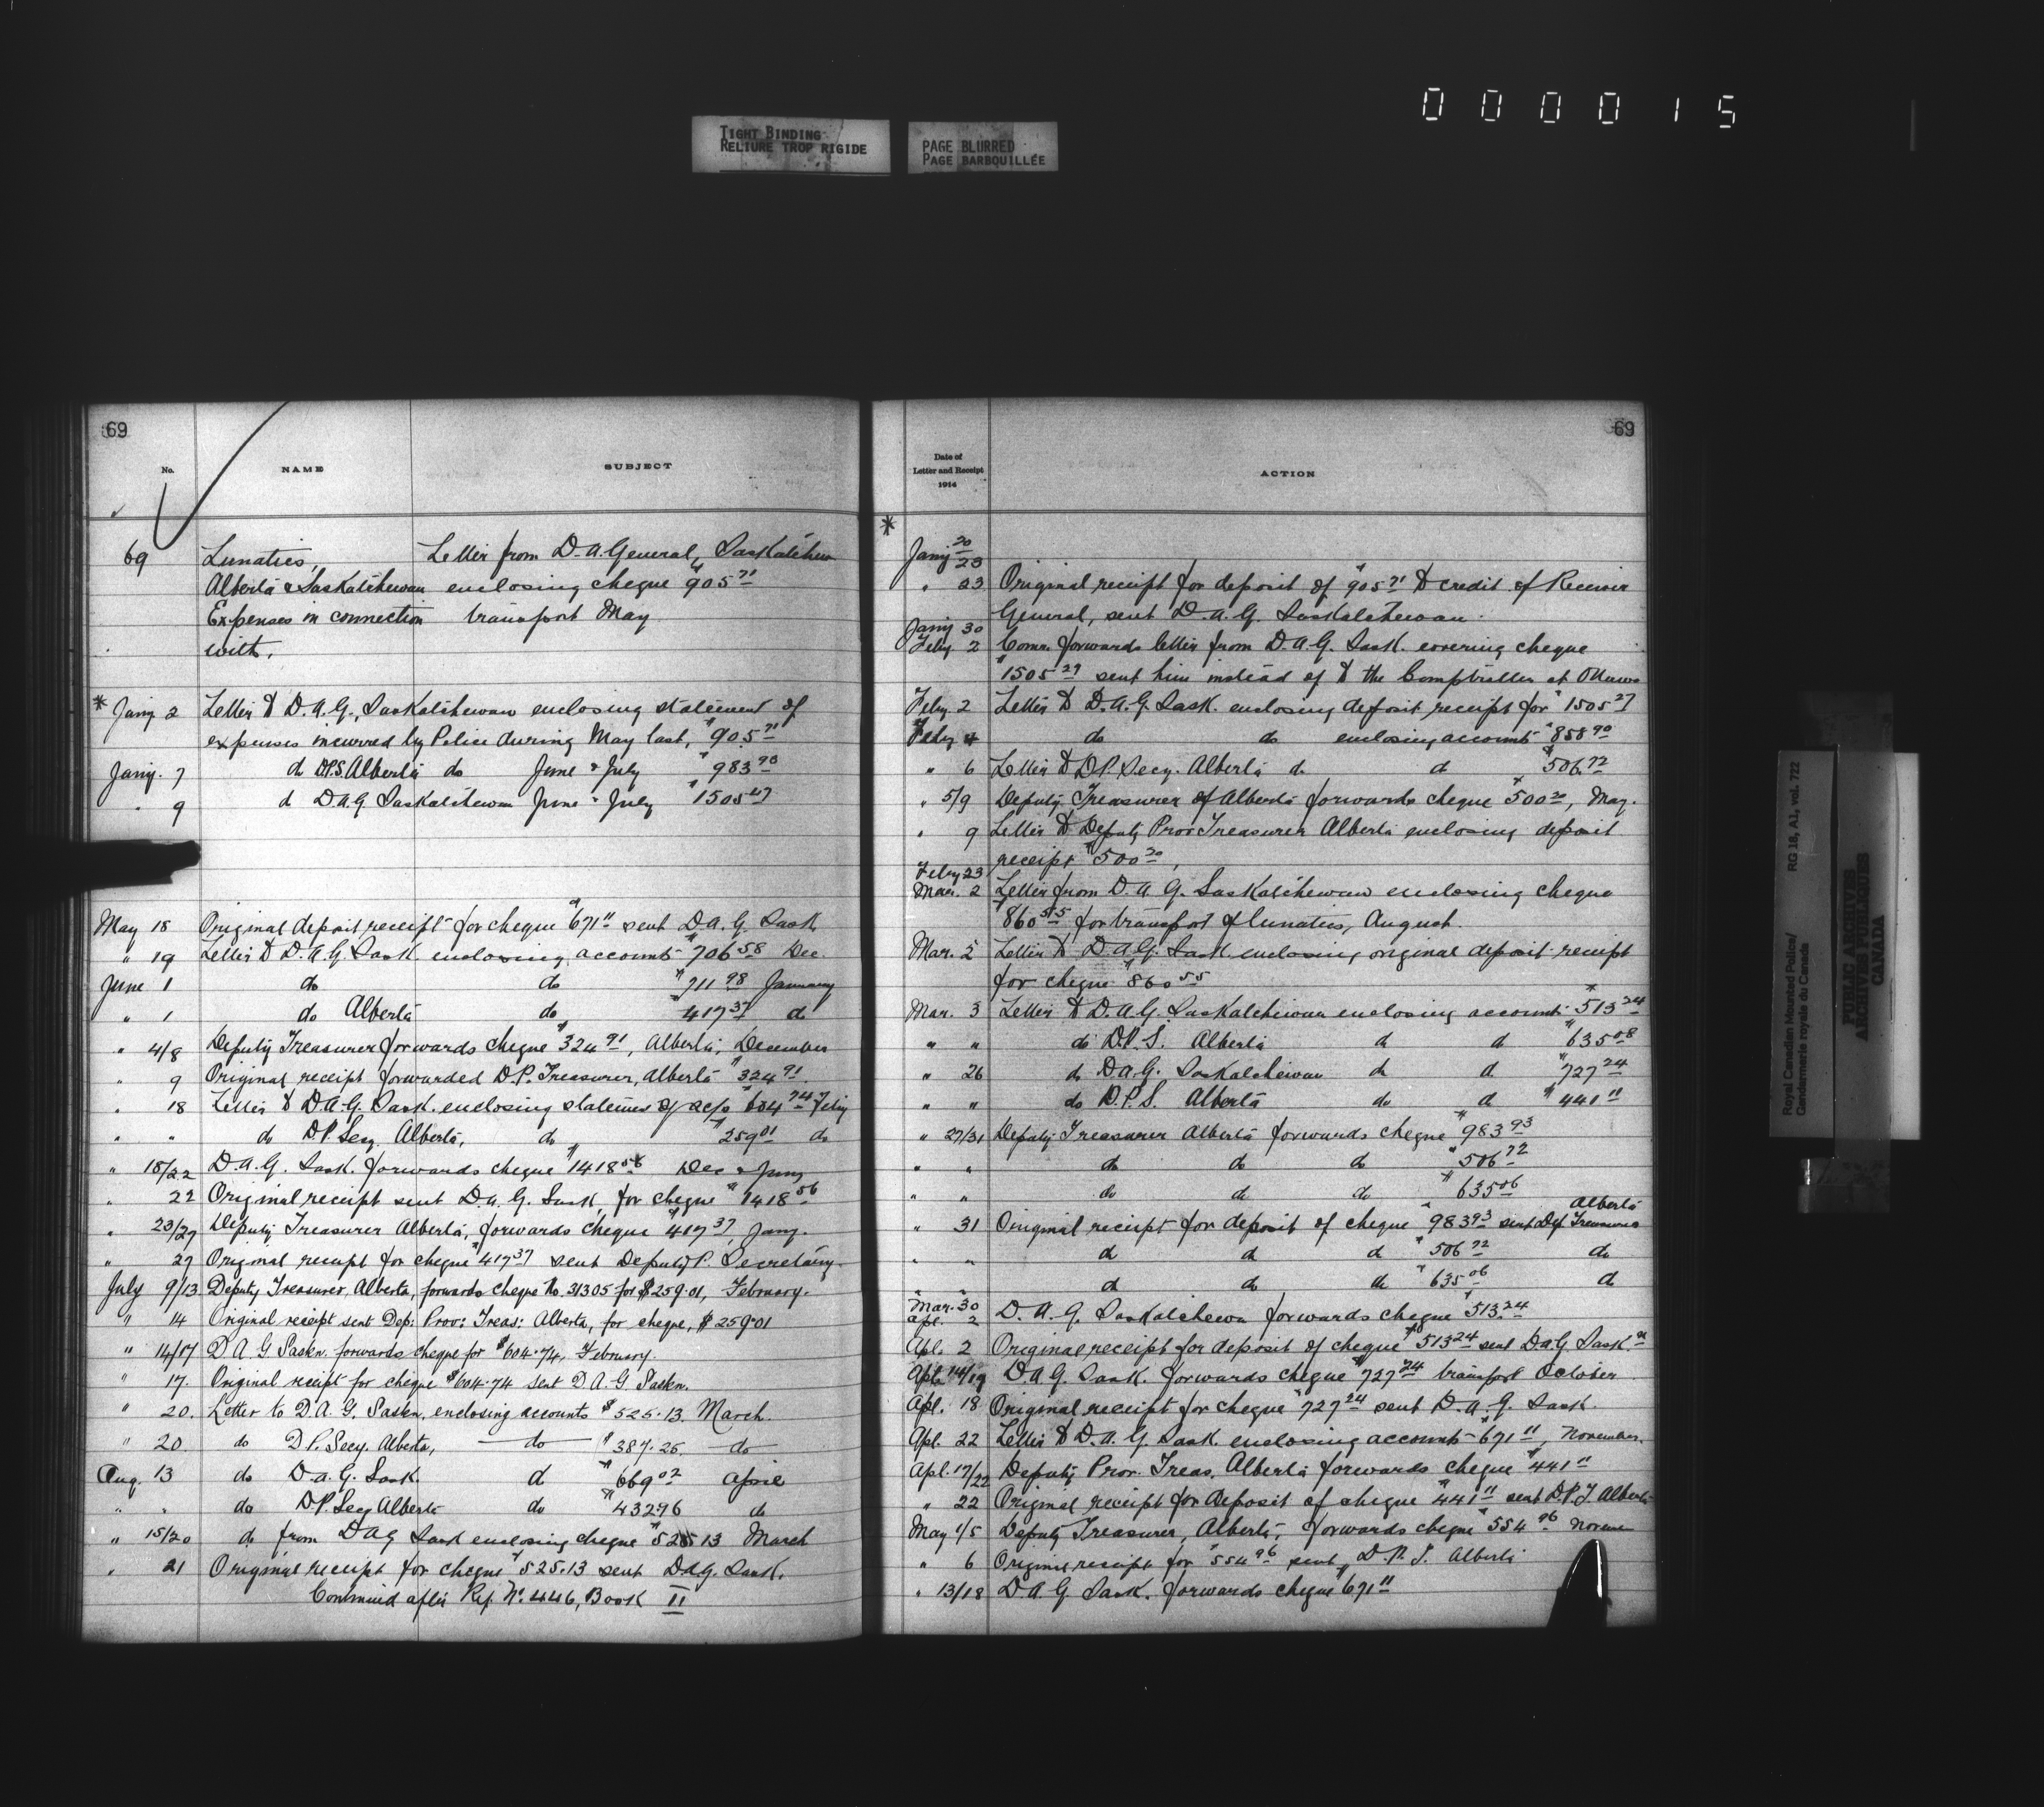 000015
TIGHT BINDING
RELIURE TROP RIGIDE
PAGE BLURRED
PAGE BARBOUILLÉE
69
No.
NAME
SUBJECT
69 Lunatics, Letter from D. A. General, Saskatchewn
Alberta & Saskatchewan enclosing cheque $905 71
Expenses in connection transport May
with.
* Jany 2 Letter to D. A. G., Saskatchewan enclosing statement of
expenses incurred by Police during May last, $905 71
Jany. 7 do D.P.S. Alberta do June & July $983 93
" 9 do D A G Saskatchewan June & July $1505 27
May 18 Original deposit receipt for cheque $671 11 sent D. A. G. Sask
" 19 Letter to D. A. G. Sask. enclosing accounts $706 58 Dec.
June 1 do do $711 98 January
" 1 do Alberta do $417 37 do
" 4/8 Deputy Treasurer forwards cheque $324 91, Alberta, December
" 9 Original receipt forwarded D. P. Treasurer, Alberta $324 91.
" 18 Letter to D. A. G. Sask. enclosing statement of ac/s $604 74 Feby
" " do D. P. Secy. Alberta, do $259 01 do
" 18/22 D. A. G. Sask. forwards cheque $1418 56 Dec & Jany
" 22 Original receipt sent D. A. G. Sask, for cheque $1418 56
" 23/27 Deputy Treasurer Alberta, forwards cheque $417 37, Jany.
" 27 Original receipt for cheque $417 37 sent Deputy P. Secretary.
July 9/13 Deputy Treasurer, Alberta, forwards cheque No. 31305 for $259.01, February.
" 14 Original receipt sent Dep: Prov: Treas: Alberta, for cheque, $259.01
" 14/17 D. A. G Saskn. forwards cheque for $604.74, February.
" 17. Original receipt for cheque $604.74 sent D. A. G. Saskn.
" 20. Letter to D. A. G. Saskn. enclosing accounts $525.13 March.
" 20 do D. P. Secy. Alberta, do $387.25 do
Aug. 13 do D. A. G. Sask. do $669 02 April
" " do D. P. Secy Alberta do $432 96 do
" 15/20 do from D A G Sask enclosing cheque $525 13 March
" 21 Original receipt for cheque $525.13 sent D. A. G. Sask.
Continued after Ref. No. 446, Book II
69
Date of
Letter and Receipt
1914
ACTION
*
Jany 20
23
" 23 Original receipt for deposit of $905 71 to credit of Receiver
General, sent D. A. G. Saskatchewan.
Jany 30
Feby 2 Comr. forwards letter from D. A. G. Sask. covering cheque
$1505 27 sent him instead of to the Comptroller at Ottawa
Feby. 2 Letter to D. A. G. Sask. enclosing deposit receipt for $1505 27
Feby 4 do do enclosing accounts $858 90
" 6 Letter to D. P. Secy. Alberta do do $506 72
" 5/9 Deputy Treasurer of Alberta forwards cheque $500 20, May.
" 9 Letter to Deputy Prov Treasurer Alberta enclosing deposit
receipt $500 20,
Feby 23
Mar. 2 Letter from D. A. G. Saskatchewan enclosing cheque
$860 55 for transport of lunatics, August.
Mar. 5 Letter to D. A. G. Sask. enclosing original deposit receipt
for cheque $860 55
Mar. 3 Letter to D. A. G. Saskatchewan enclosing accounts $513 24
" " do D. P. S. Alberta do do $635 08
" 26 do D. A. G. Saskatchewan do do $727 24
" " do D. P. S. Alberta do do $441 11
" 27/31 Deputy Treasurer Alberta forwards cheque $983 93
" " do do do $506 72
" " do do do $635 06
" 31 Original receipt for deposit of cheque $983 93 sent Dep. Treasurer Alberta
" " do do do $506 72 do
" " do do do $635 06 do
Mar. 30
Apl. 2 D. A. G. Saskatchewn forwards cheque $513 24
Apl. 2 Original receipt for deposit of cheque $513 24 sent D. A. G. Sask n
Apl. 14/19 D. A. G. Sask. forwards cheque $727 24 transport October
Apl. 18 Original receipt for cheque $727 24 sent D. A. G. Sask.
Apl. 22 Letter to D. A. G. Sask. enclosing accounts $671 11, November.
Apl. 17/22 Deputy Prov. Treas. Alberta forwards cheque $441 11
" 22 Original receipt for deposit of cheque $441 11 sent D. P. T. Alberta
May 1/5 Deputy Treasurer, Alberta, forwards cheque $554 96
" 6 Original receipt for $554 96 sent D. P. T. Alberta
" 13/18 D. A. G. Sask. forwards cheque $671 11
Royal Canadian Mounted Police/
Gendarmerie royale du Canada
RG 18, A1, vol. 722
PUBLIC ARCHIVES
ARCHIVES PUBLIQUES
CANADA